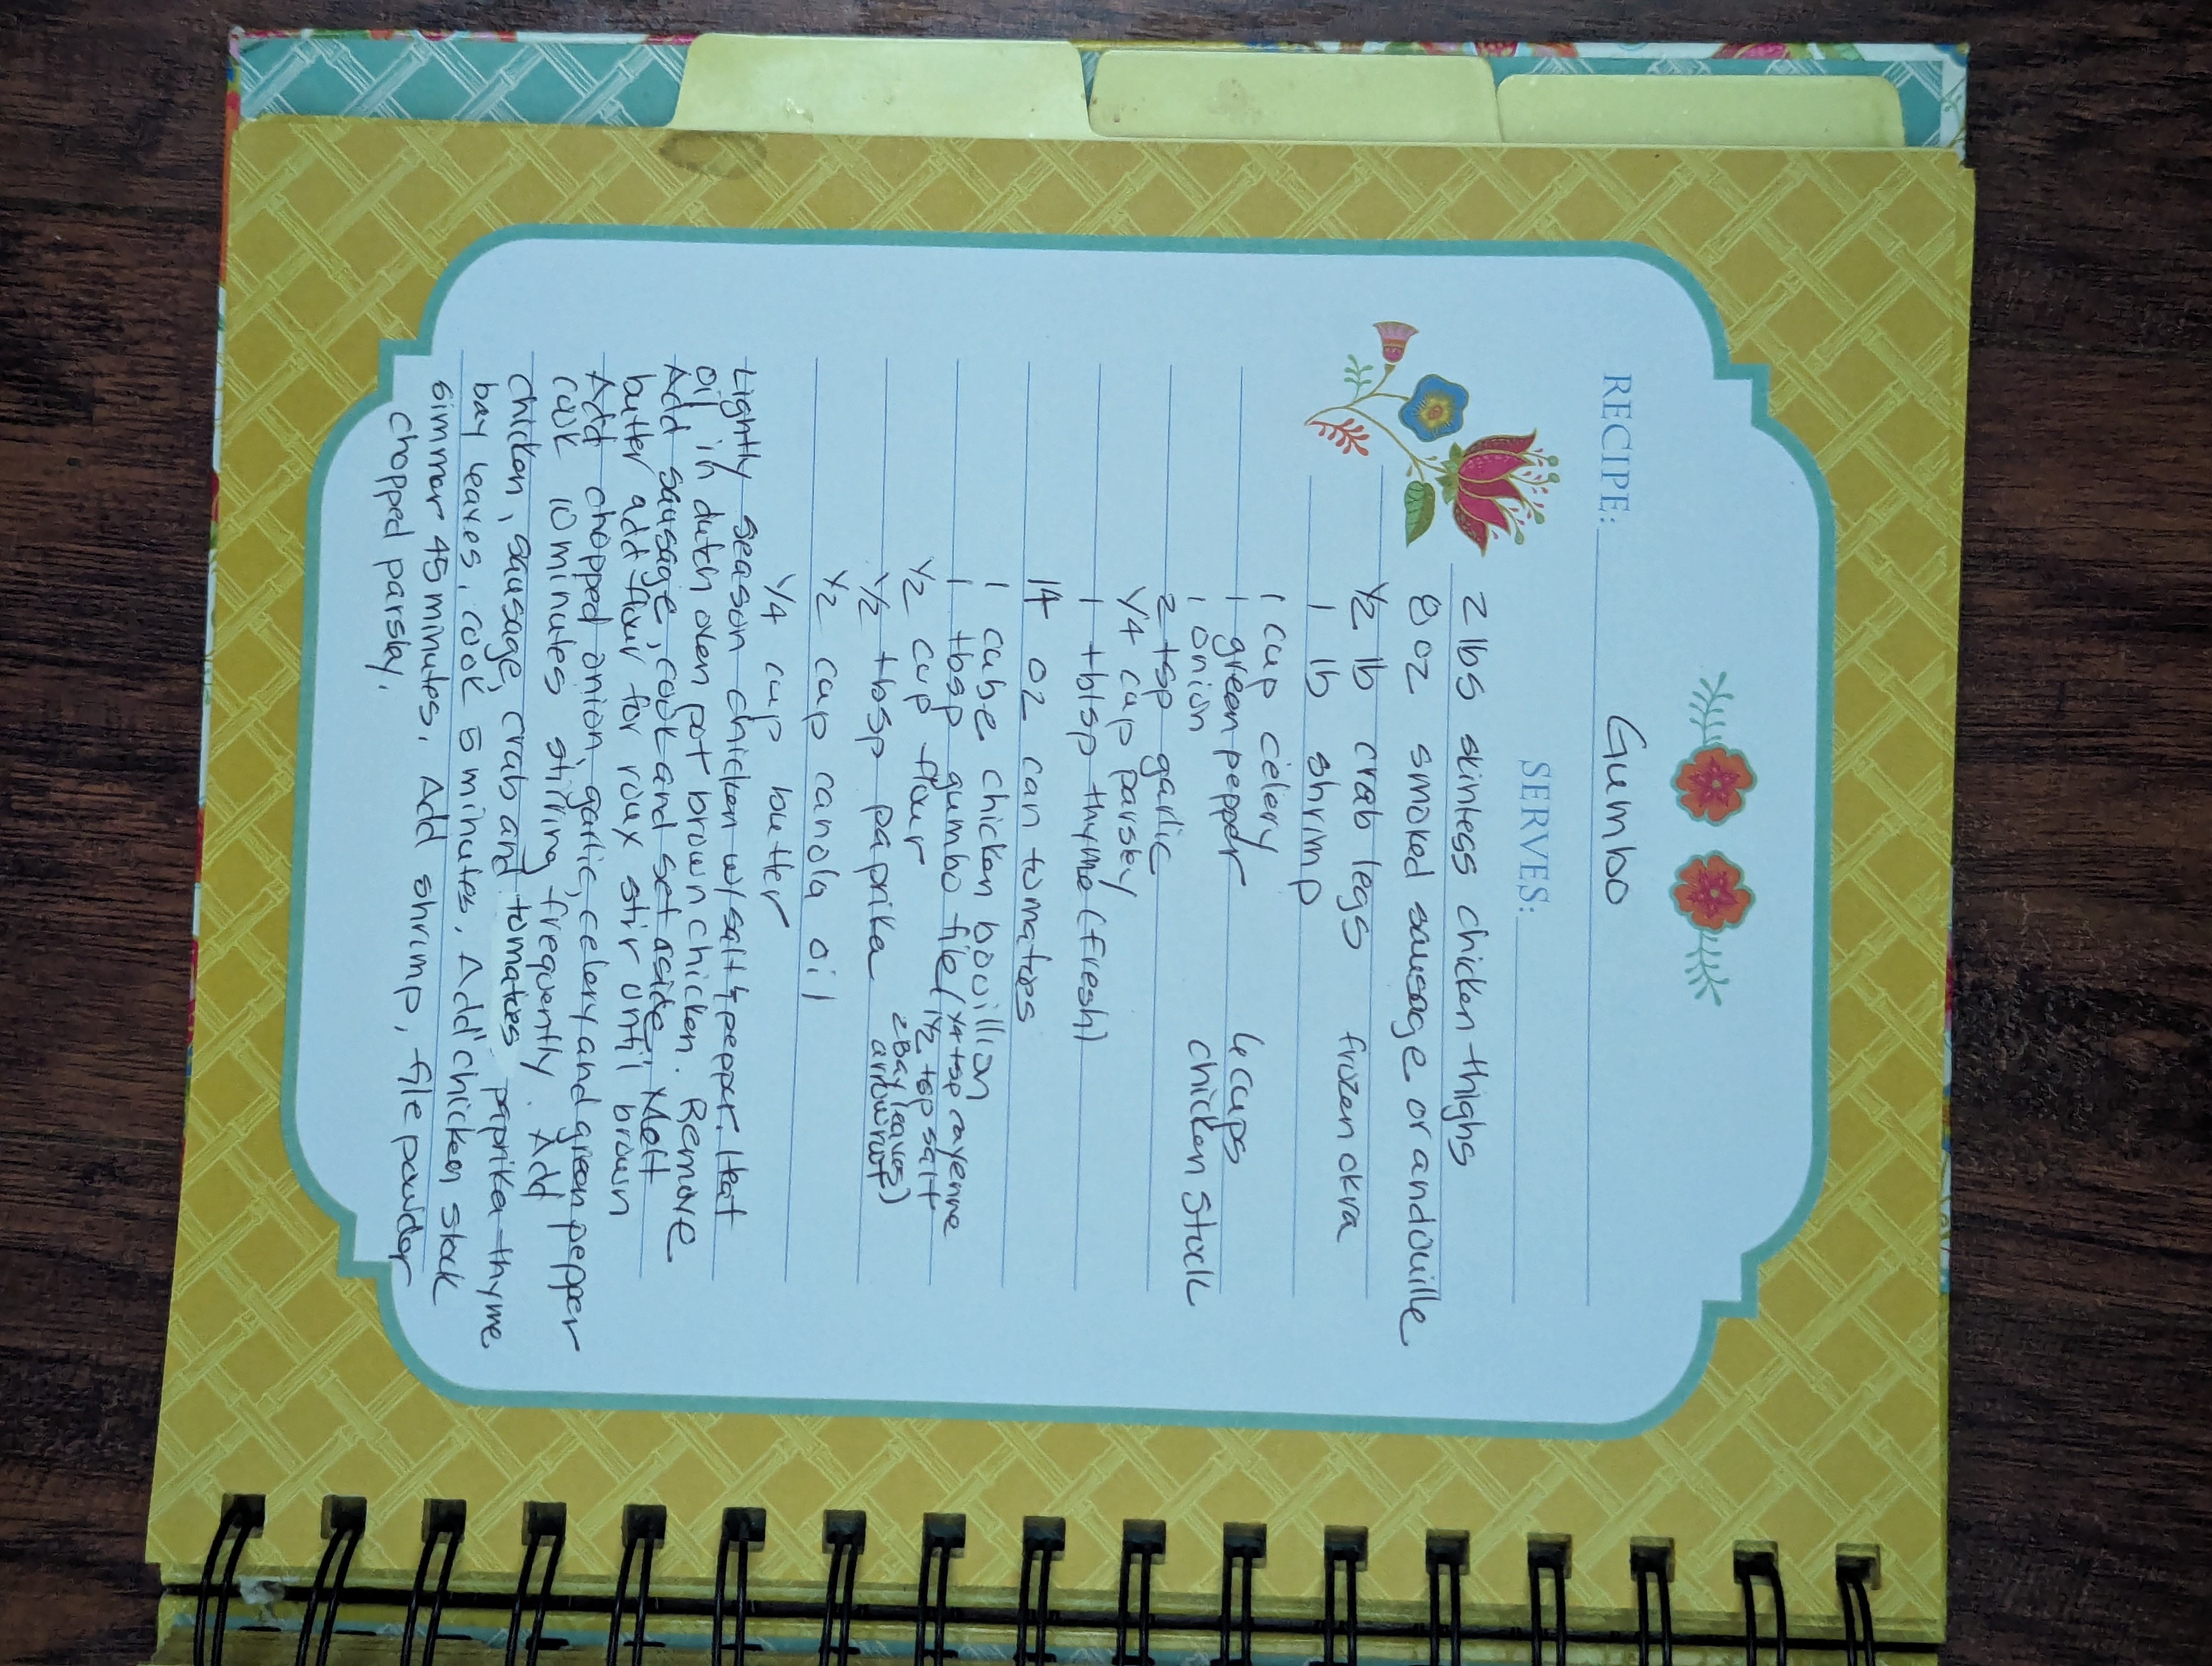 RECIPE: Gumbo
SERVES:
2 lbs skinless chicken thighs
8 oz smoked sausage or andouille
1/2 lb crab legs frozen okra
1 lb shrimp
1 cup celery
1 green pepper 4 cups
1 onion chicken stock
2 tsp garlic
1/4 cup parsley
1 tblsp thyme (fresh)
14 oz can tomatoes
1 cube chicken bouillion
1 tbsp gumbo file (1/4 tsp cayenne
1/2 cup flour 1/2 tsp salt
2 Bay leaves)
1/2 tbsp paprika arrowroot
1/2 cup canola oil
1/4 cup butter
Lightly season chicken w/salt & pepper. Heat
oil in dutch oven pot brown chicken. Remove
Add sausage, cook and set aside, Melt
butter add flour for roux stir until brown
Add chopped onion, garlic, celery and green pepper
cook 10 minutes stirring frequently. Add
chicken, sausage, crab and tomatoes paprika thyme
bay leaves, cook 5 minutes, Add chicken stock
simmer 45 minutes. Add shrimp, file powder
chopped parsley.